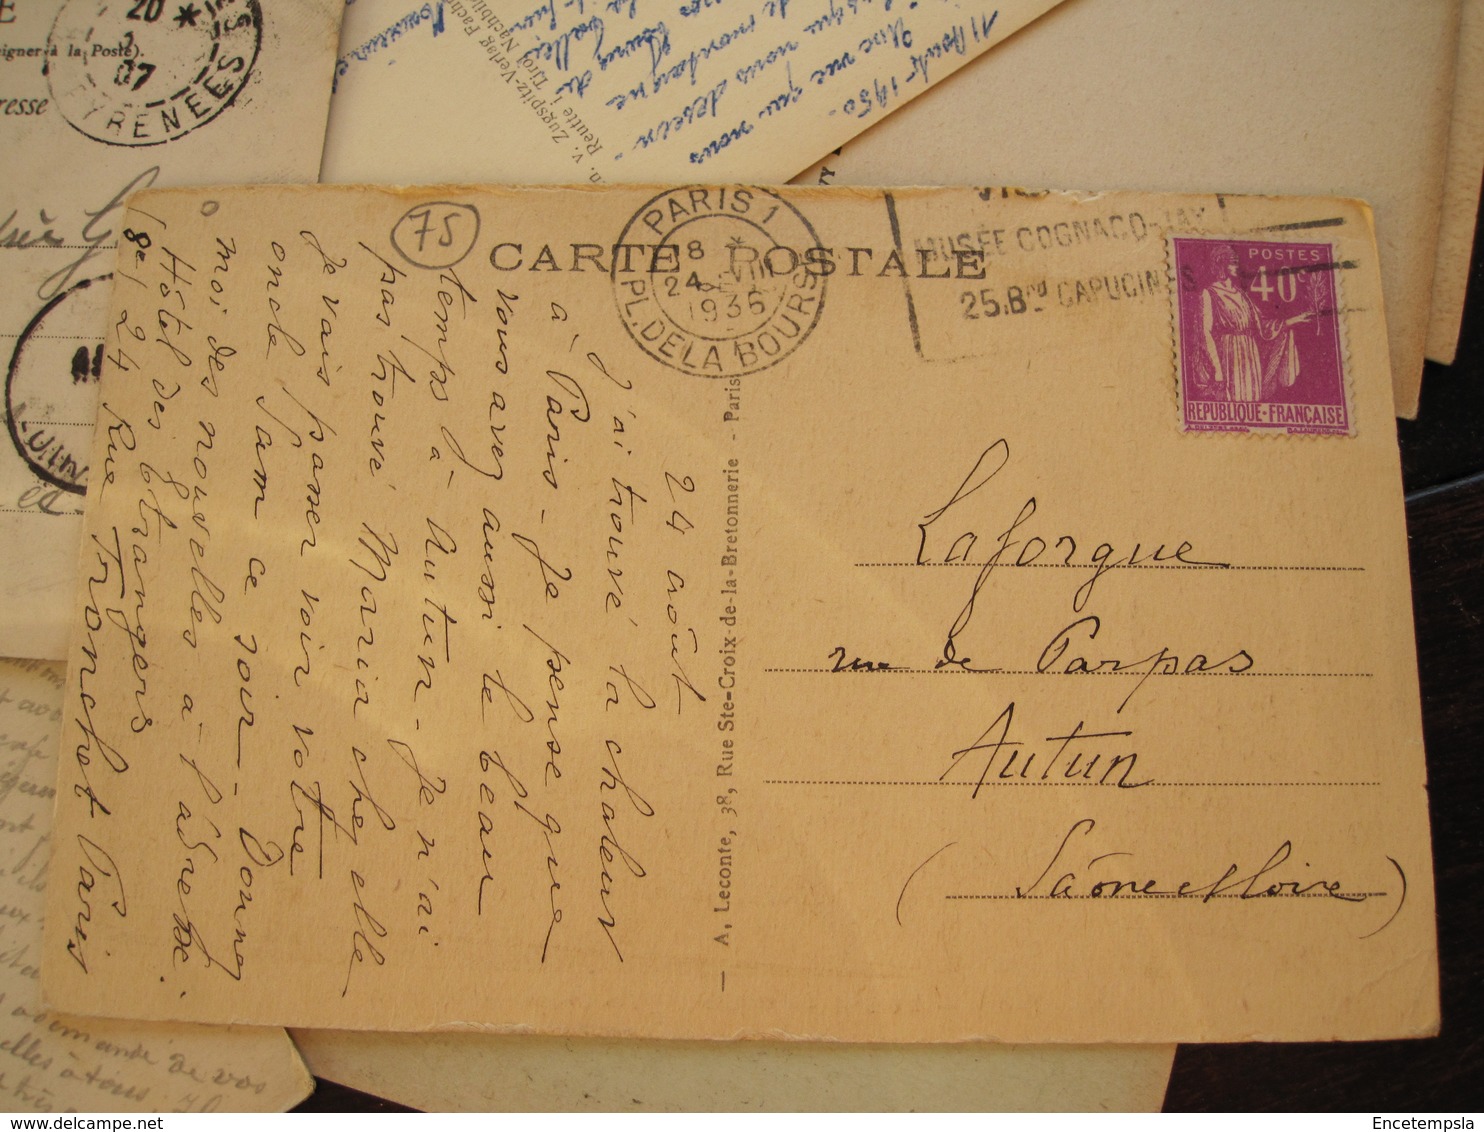 CARTE POSTALE
75
PARIS 1
8 *
24 -VIII
1936
PL. DE LA BOURSE
MUSÉE COGNACQ-JAY
25.Bᴿᴰ CAPUCINES
POSTES
40ᶜ
REPUBLIQUE-FRANÇAISE
24 août
J'ai trouvé la chaleur
à Paris - Je pense que
vous avez aussi le beau
temps à Autun - Je n'ai
pas trouvé Maria chez elle
Je vais passer voir votre
oncle Sam ce soir - Donnez
moi des nouvelles à l'adresse.
Hôtel des Etrangers
(8e) 24 Rue Tronchet Paris
— A, Leconte, 38, Rue Ste-Croix-de-la-Bretonnerie - Paris
Laforgue
rue de Parpas
Autun
(Saône et Loire)
20
07
PYRENEES
à la Poste).
11 Août 1950.
Une vue que nous
v. Zugspitz-Verlag
Reutte i Tirol
demande de vos
elles à tous.
Encetempsla